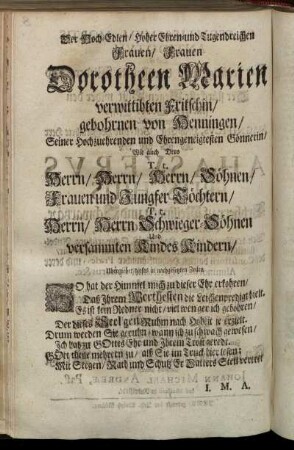 Der Hoch-Edlen/ Hoher Ehren- und Tugendreichen
Frauen/ Frauen
Dorotheen Marien
verwittibten Fritschin/
gebohrnen von Henningen/
Seiner Hochzuehrenden und Ehrengeneigtesten Gönnerin/
Wie auch Dero
T. t.
Herrn/ Herrn/ Herrn/ Söhnen/
Frauen und Jungfer Töchtern/
T. t.
Herrn/ Herrn Schwieger-Söhnen
Und
versammten Kindes Kindern/
Übergiebet dieses in nachgesetzten Zeilen
SO hat der Himmel mich zu dieser Ehr erkohren/
Daß Ihrem Werthesten die Leichenpredigt hielt.
Es ist kein Redner nicht/ viel weniger ich gebohren/
Der dieses Seelgen Ruhm nach Hoheit je erzielt.
Drum werden Sie geneigt/ wann ich zu schwach gewesen/
Ich hab zu GOttes Ehr und Ihrem Trost geredt.
GOtt theile mehrern zu/ als Sie im Druck hier lesen:
Mit Seegen/ Rath und Schutz Er Vatters Stell vertrett
I. M. A.